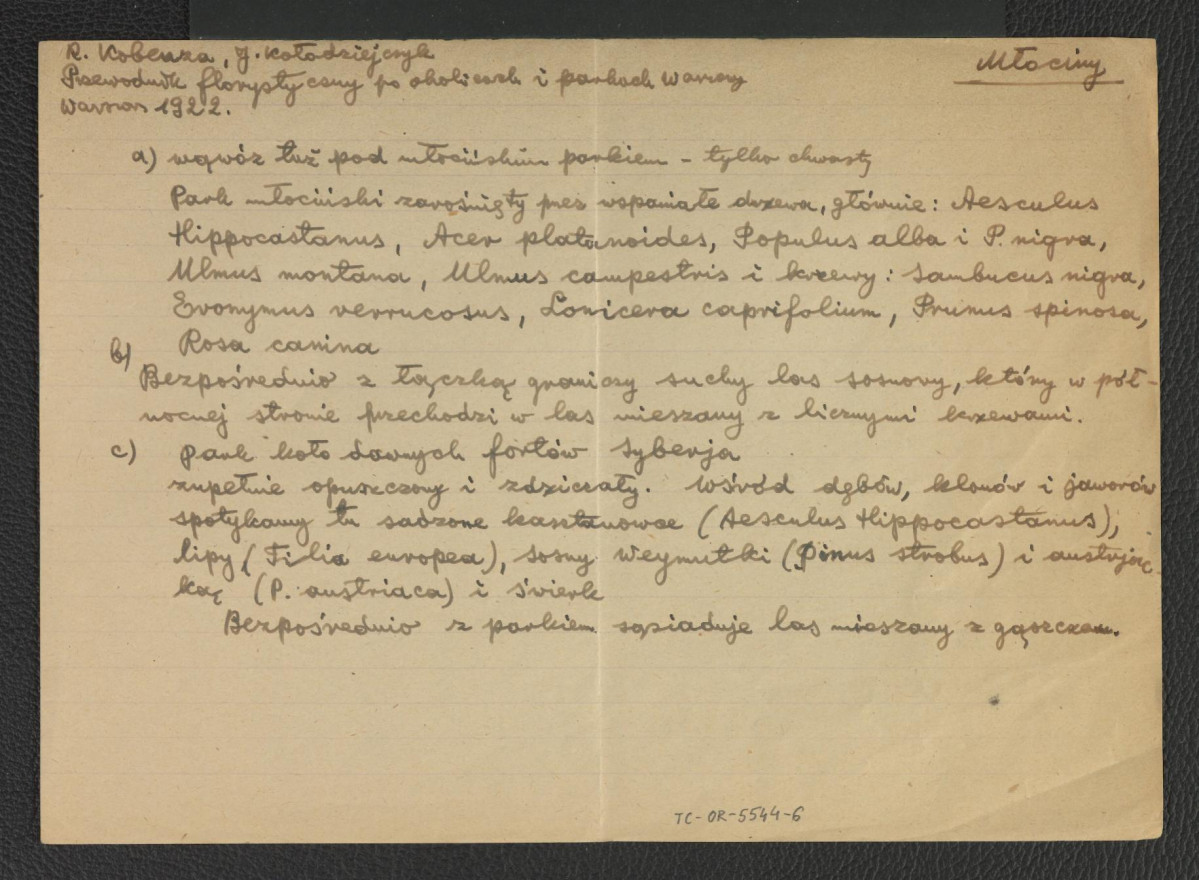 R. Kobenza, J. Kołodziejczyk
Młociny
Przewodnik florystyczny po okolicach i parkach Warszawy
Warszawa 1922.
a) wąwóz tuż pod młocińskim parkiem - tylko chwasty
Park młociński zarośnięty przez wspaniałe drzewa, głównie: Aesculus
Hippocastanus, Acer platanoides, Populus alba i P. nigra,
Ulmus montana, Ulmus campestris i krzewy: Sambucus nigra,
Evonymus verrucosus, Lonicera caprifolium, Prunus spinosa,
Rosa canina
b) Bezpośrednio z łączką graniczy suchy las sosnowy, który w pół-
nocnej stronie przechodzi w las mieszany z licznymi krzewami.
c) park koło dawnych fortów Syberja
zupełnie opuszczony i zdziczały. Wśród dębów, klonów i jaworów
spotykamy tu sadzone kasztanowce (Aesculus Hippocastanus),
lipy (Tilia europea), sosny Weymutki (Pinus strobus) i austrjac-
ką (P. austriaca) i świerk
Bezpośrednio z parkiem sąsiaduje las mieszany z gąszczem.
TC-OR-5544-6